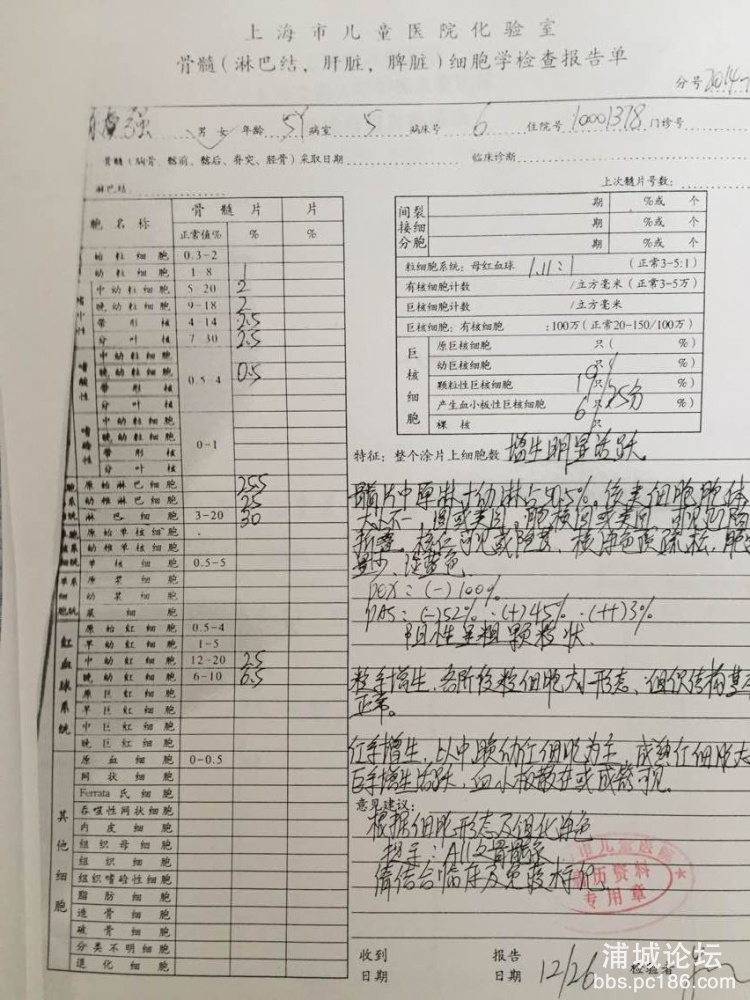 上海市儿童医院化验室
骨髓(淋巴结、肝脏、脾脏)细胞学检查报告单
分号 2014
强 男 女 年龄 5Y 病室 5 病床号 6 住院号 10001378 门诊号
骨髓(胸骨、髂前、髂后、脊突、胫骨)采取日期 临床诊断
淋巴结 上次髓片号数:
胞名称 骨髓片 片
正常值% % %
始粒细胞 0.3-2
幼粒细胞 1-8 1
中性
中幼粒细胞 5-20 2
晚幼粒细胞 9-18 2
带形核 4-14 2.5
分叶核 7-30 2.5
嗜酸性
中幼粒细胞
晚幼粒细胞 0.5-4 0.5
带形核
分叶核
嗜碱性
中幼粒细胞
晚幼粒细胞 0-1
带形核
分叶核
原始淋巴细胞 25.5
幼稚淋巴细胞 25
淋巴细胞 3-20 30
原始单核细胞
幼稚单核细胞
单核细胞 0.5-5
原浆细胞
幼浆细胞
浆细胞
红血球系统
原始红细胞 0.5-4
早幼红细胞 1-5
中幼红细胞 12-20 2.5
晚幼红细胞 6-10 6.5
原巨红细胞
早巨红细胞
中巨红细胞
晚巨红细胞
其他细胞
原血细胞 0-0.5
网状细胞
Ferrata氏细胞
吞噬性网状细胞
内皮细胞
组织母细胞
组织细胞
组织嗜碱性细胞
脂肪细胞
造骨细胞
破骨细胞
分类不明细胞
退化细胞
间接分裂细胞
期 %或 个
期 %或 个
期 %或 个
粒细胞系统:母红血球 1.11:1 (正常3-5:1)
有核细胞计数 /立方毫米(正常3-5万)
巨核细胞计数 /立方毫米
巨核细胞:有核细胞 :100万(正常20-150/100万)
巨核细胞
原巨核细胞 只( %)
幼巨核细胞 0只( %)
颗粒性巨核细胞 19只 25分 %)
产生血小板性巨核细胞 6只 %)
裸核
特征:整个涂片上细胞数 增生明显活跃
髓片中原淋+幼淋占50.5%,该类细胞胞体
大小不一,圆或类圆,胞核圆或类圆,可见凹陷
折叠,核仁可见或隐若,核染色质疏松,胞
量少,淡蓝色.
POX:(-)100%
PAS:(-)52%.(+)45%.(++)3%
阳性呈粗颗粒状.
粒系增生,各阶段粒细胞大小形态、组织结构基本
正常。
红系增生,以中晚幼红细胞为主,成熟红细胞大
巨系增生活跃,血小板散在或成簇可见.
意见建议:
根据细胞形态及组化染色
提示:ALL之骨髓象
请结合临床及免疫标
市儿童医院
病历资料
专用章
收到日期 报告日期 12/26 检验者
浦城论坛
bbs.pc186.com